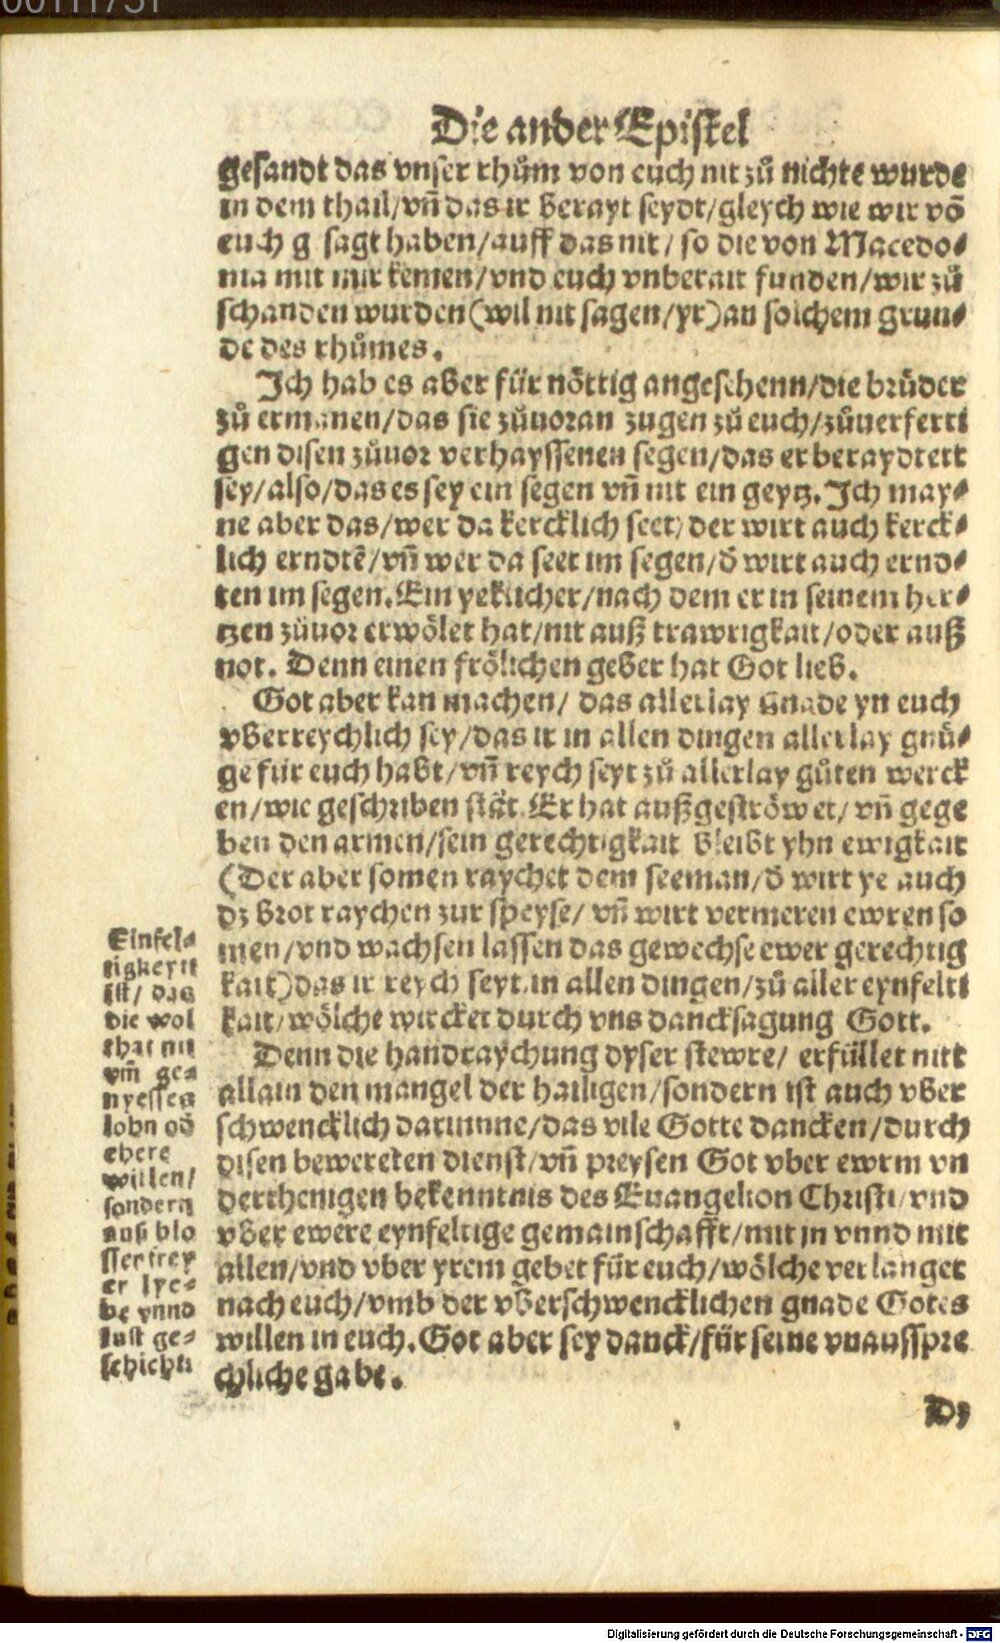 Die ander Epistel
gesandt das vnser rhům von euch nit zů nichte wurde
in dem thail/vñ das ir berayt seydt/gleych wie wir võ
euch g sagt haben/auff das nit/ so die von Macedo⸗
nia mit mir kemen/vnd euch vnberait funden/wir zů
schanden wurden(wil nit sagen/yr)an solchem grun⸗
de des rhůmes.
Ich hab es aber für nöttig angesehenn/die brüder
zů ermanen/das sie zůuoran zugen zů euch/zůuerferti
gen disen zůuor verhayssenen segen/das er beraydtett
sey/also/das es sey ein segen vñ nit ein geytz. Ich may⸗
ne aber das/wer da kercklich seet/der wirt auch kerck⸗
lich erndtē/vñ wer da seet im segen/d̄ wirt auch ernd⸗
ten im segen. Ein yeklicher/nach dem er in seinem her⸗
tzen zůuor erwölet hat/nit auß trawrigkait/oder auß
not. Denn einen frölichen geber hat Got lieb.
Got aber kan machen/ das allerlay gnade yn euch
vberreychlich sey/das ir in allen dingen allerlay gnů⸗
ge für euch habt/vñ reych seyt zů allerlay gůten werck
en/wie geschriben stät. Er hat außgeströwet/ vñ gege
ben den armen/sein gerechtigkait bleibt yhn ewigkait
(Der aber somen raychet dem seeman/d̄ wirt ye auch
dz brot raychen zur speyse/ vñ wirt vermeren ewren so
men/vnd wachsen lassen das gewechse ewer gerechtig
kait)das ir reych seyt in allen dingen/zů aller eynfelti
kait/wölche wircket durch vns dancksagung Gott.
Denn die handraychung dyser stewre/ erfüllet nitt
allain den mangel der hailigen/sondern ist auch vber
schwencklich darinnne/das vile Gotte dancken/durch
disen bewereten dienst/vñ preysen Got vber ewrm vn
derthenigen bekenntnis des Euangelion Christi/vnd
vber ewere eynfeltige gemainschafft/mit in vnnd mit
allen/vnd vber yrem gebet für euch/wölche verlanget
nach euch/vmb der vberschwencklichen gnade Gotes
willen in euch. Got aber sey danck/für seine vnausspre
chliche gabe.
Dz
Einfel⸗
tigkeytt
ist/ das
die wol
that nit
vm̄ ge⸗
nyesses
lohn od̄
ehere
willen/
sondern
auß blo
sser frey
er lye⸗
be vnnd
lust ge⸗
schicht
Digitalisierung gefördert durch die Deutsche Forschungsgemeinschaft - DFG